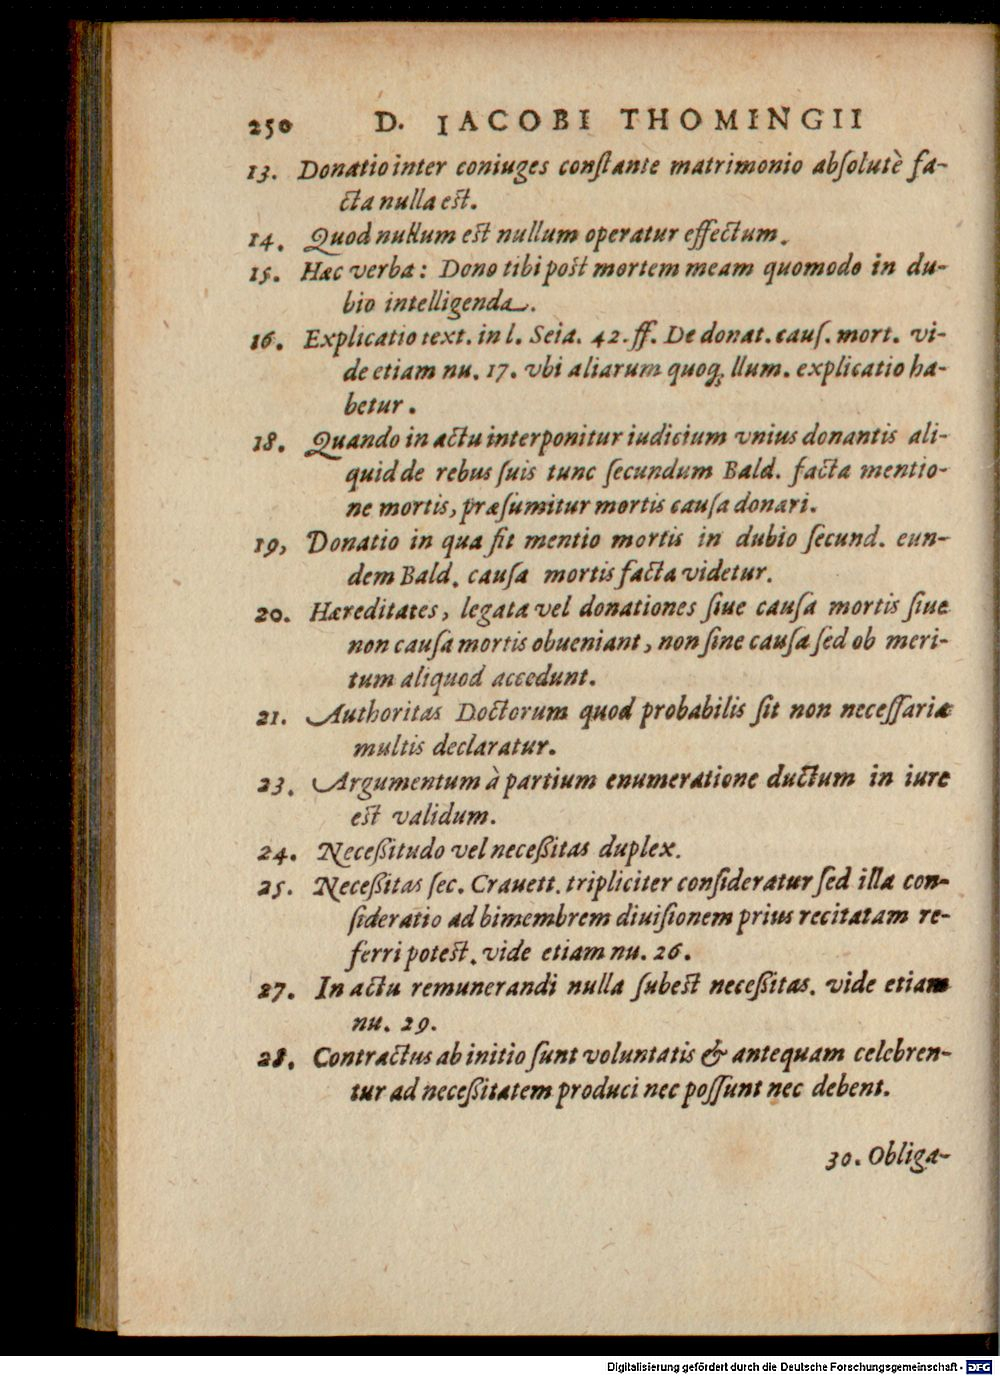 250 D. IACOBI THOMINGII
13. Donatio inter coniuges conſtante matrimonio abſolutè fa-
cta nulla est.
14. Quod nullum est nullum operatur effectum.
15. Hæc verba: Dono tibi post mortem meam quomodo in du-
bio intelligenda.
16. Explicatio text. in l. Seia. 42. ff. De donat. cauſ. mort. vi-
de etiam nu. 17. vbi aliarum quoq; llum. explicatio ha-
betur.
18. Quando in actu interponitur iudicium vnius donantis ali-
quid de rebus ſuis tunc ſecundum Bald. facta mentio-
ne mortis, præſumitur mortis cauſa donari.
19, Donatio in qua fit mentio mortis in dubio ſecund. eun-
dem Bald. cauſa mortis facta videtur.
20. Hæreditates, legata vel donationes ſiue cauſa mortis ſiue
non cauſa mortis obueniant, non ſine cauſa ſed ob meri-
tum aliquod accedunt.
21. Authoritas Doctorum quod probabilis ſit non neceſſaria
multis declaratur.
23. Argumentum à partium enumeratione ductum in iure
est validum.
24. Neceßitudo vel neceßitas duplex.
25. Neceßitas ſec. Crauett. tripliciter conſideratur ſed illa con-
ſideratio ad bimembrem diuiſionem prius recitatam re-
ferri potest. vide etiam nu. 26.
27. In actu remunerandi nulla ſubest neceßitas. vide etiam
nu. 29.
28. Contractus ab initio ſunt voluntatis & antequam celebren-
tur ad neceßitatem produci nec poſſunt nec debent.
30. Obliga-
Digitalisierung gefördert durch die Deutsche Forschungsgemeinschaft - DFG